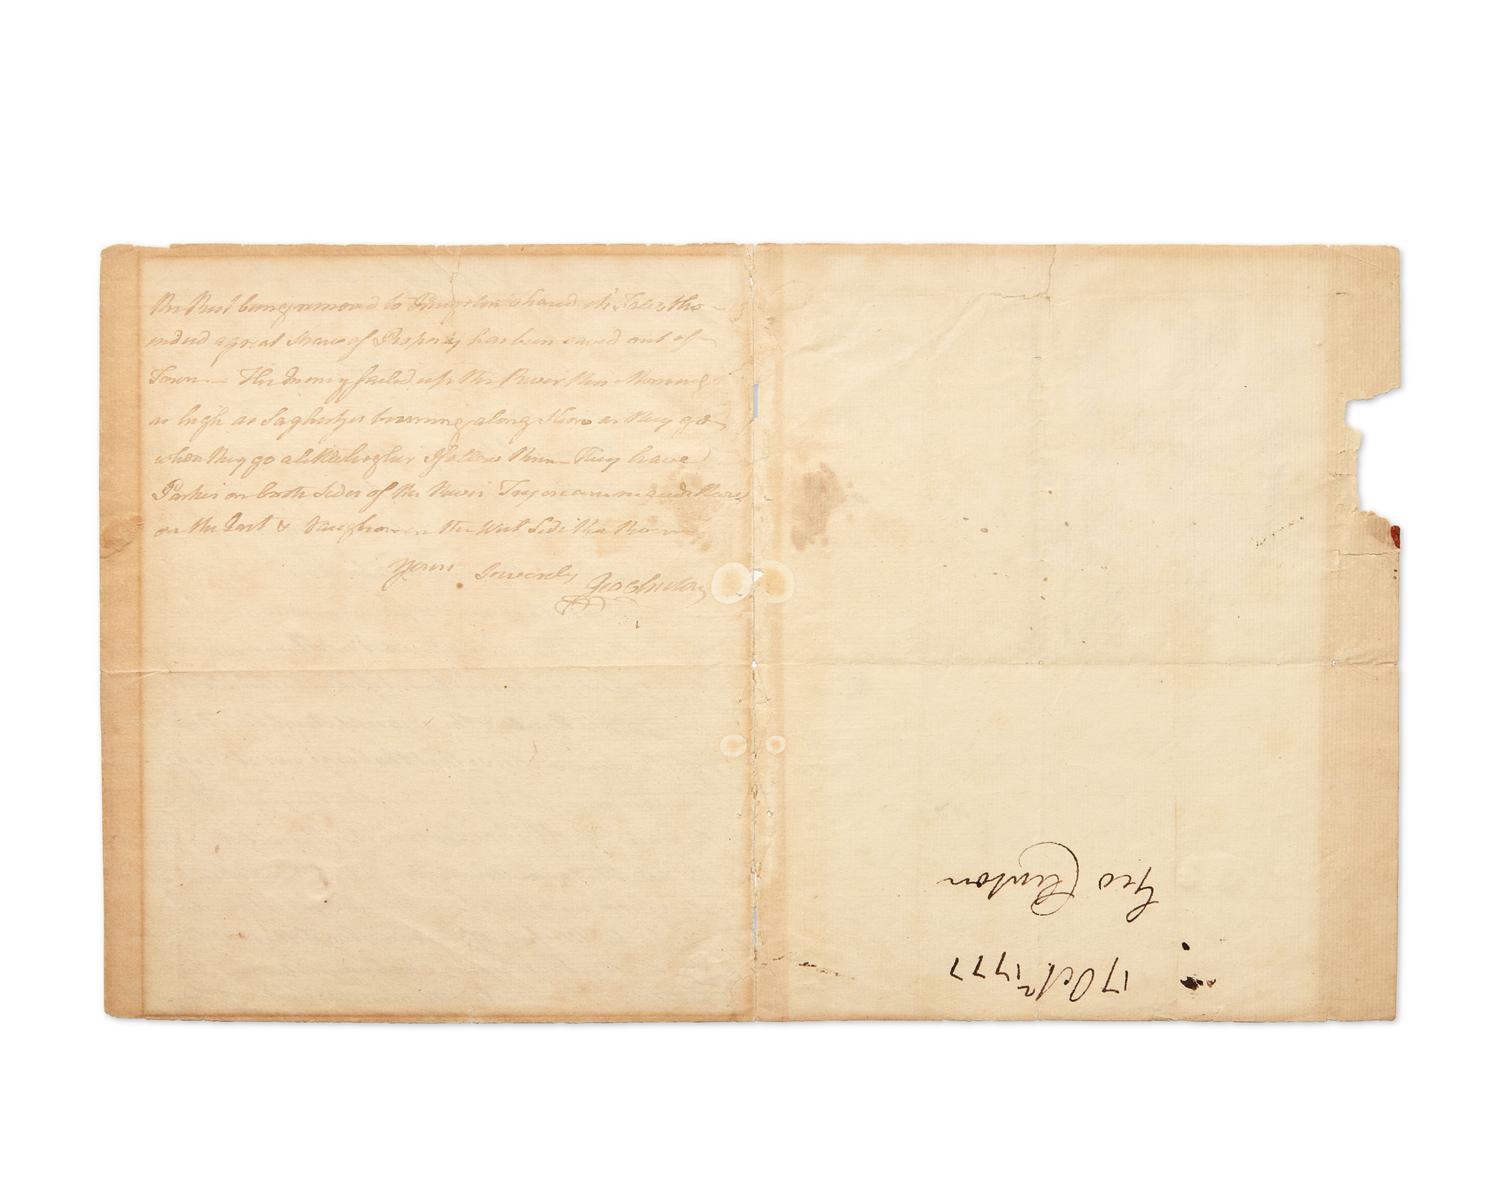 the Rest being removed to Kingston shared its Fate tho
indeed a great Share of Property has been saved out of
Town — The Enemy sailed up the River this Morning
as high as Saghertys burning along Shore as they go
when they go a little higher I follow them — They have
Parties on both Sides of the River Tryon commands those
on the East & Vaughan on the West Side the River
Yours Sincerely Geo Clinton
Geo Clinton
17 Octr 1777